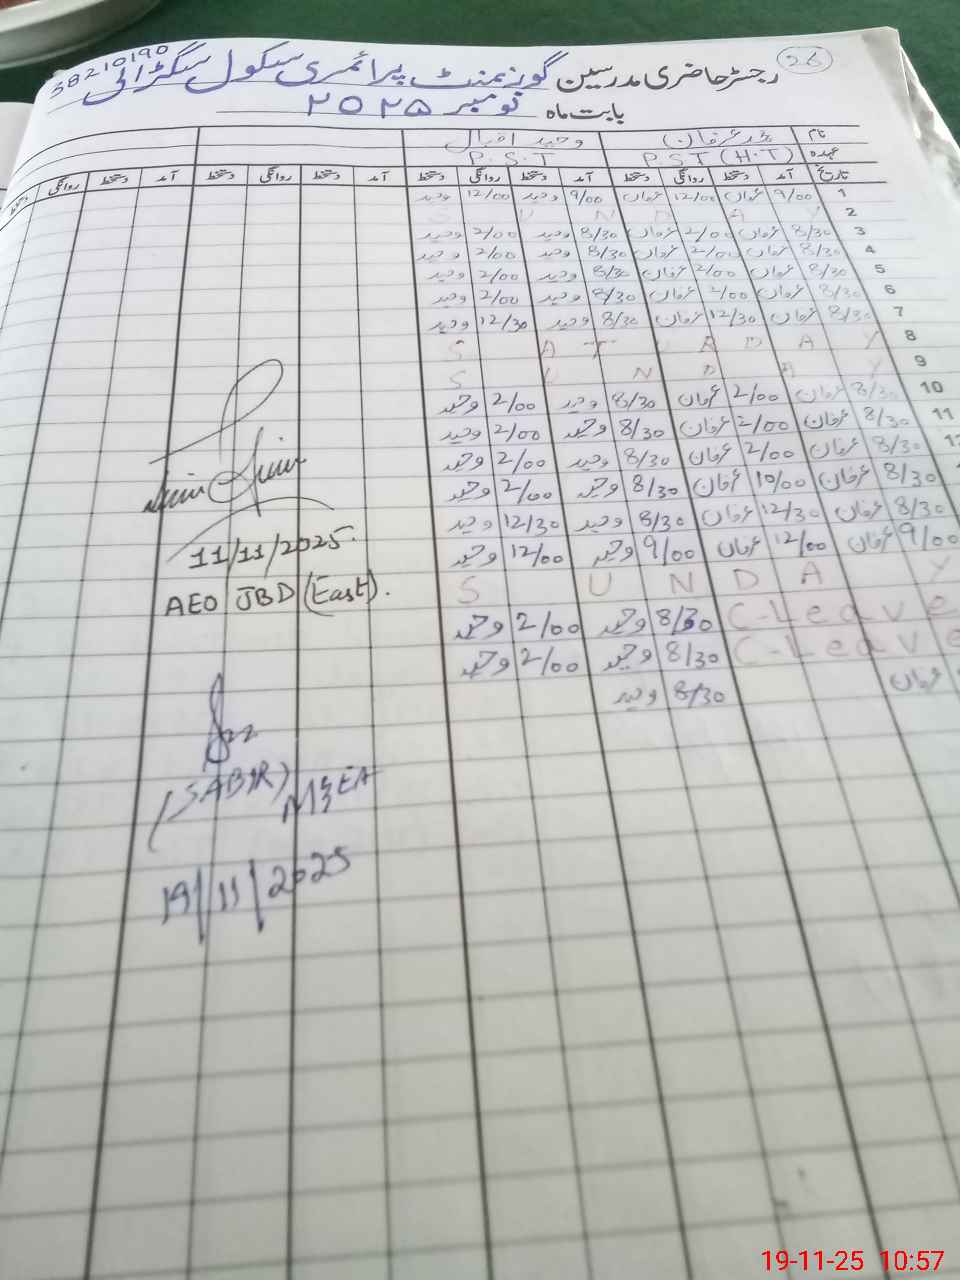 38210190
26
رجسٹر حاضری مدرسین گورنمنٹ پرائمری سکول سگھرالی
بابت ماہ نومبر ۲۰۲۵
نام محمد عرفان وحید اقبال
عہدہ P.ST (H.T) P.S.T
تاریخ آمد دستخط روانگی دستخط آمد دستخط روانگی دستخط آمد دستخط روانگی دستخط آمد دستخط روانگی دستخط
1 9/00 عرفان 12/00 عرفان 9/00 وحید 12/00 وحید
2 S U N D A Y
3 8/30 عرفان 2/00 عرفان 8/30 وحید 2/00 وحید
4 8/30 عرفان 2/00 عرفان 8/30 وحید 2/00 وحید
5 8/30 عرفان 2/00 عرفان 8/30 وحید 2/00 وحید
6 8/30 عرفان 2/00 عرفان 8/30 وحید 2/00 وحید
7 8/30 عرفان 12/30 عرفان 8/30 وحید 12/30 وحید
8 S A T U R D A Y
9 S U N D A Y
10 8/30 عرفان 2/00 عرفان 8/30 وحید 2/00 وحید
11 8/30 عرفان 2/00 عرفان 8/30 وحید 2/00 وحید
8/30 عرفان 2/00 عرفان 8/30 وحید 2/00 وحید
8/30 عرفان 10/00 عرفان 8/30 وحید 2/00 وحید
8/30 عرفان 12/30 عرفان 8/30 وحید 12/30 وحید
9/00 عرفان 12/00 عرفان 9/00 وحید 12/00 وحید
S U N D A Y
C-Leave 8/30 وحید 2/00 وحید
C-Leave 8/30 وحید 2/00 وحید
عرفان 8/30 وحید
11/11/2025.
AEO JBD (East).
(SABIR)
MEA
19/11/2025
19-11-25 10:57